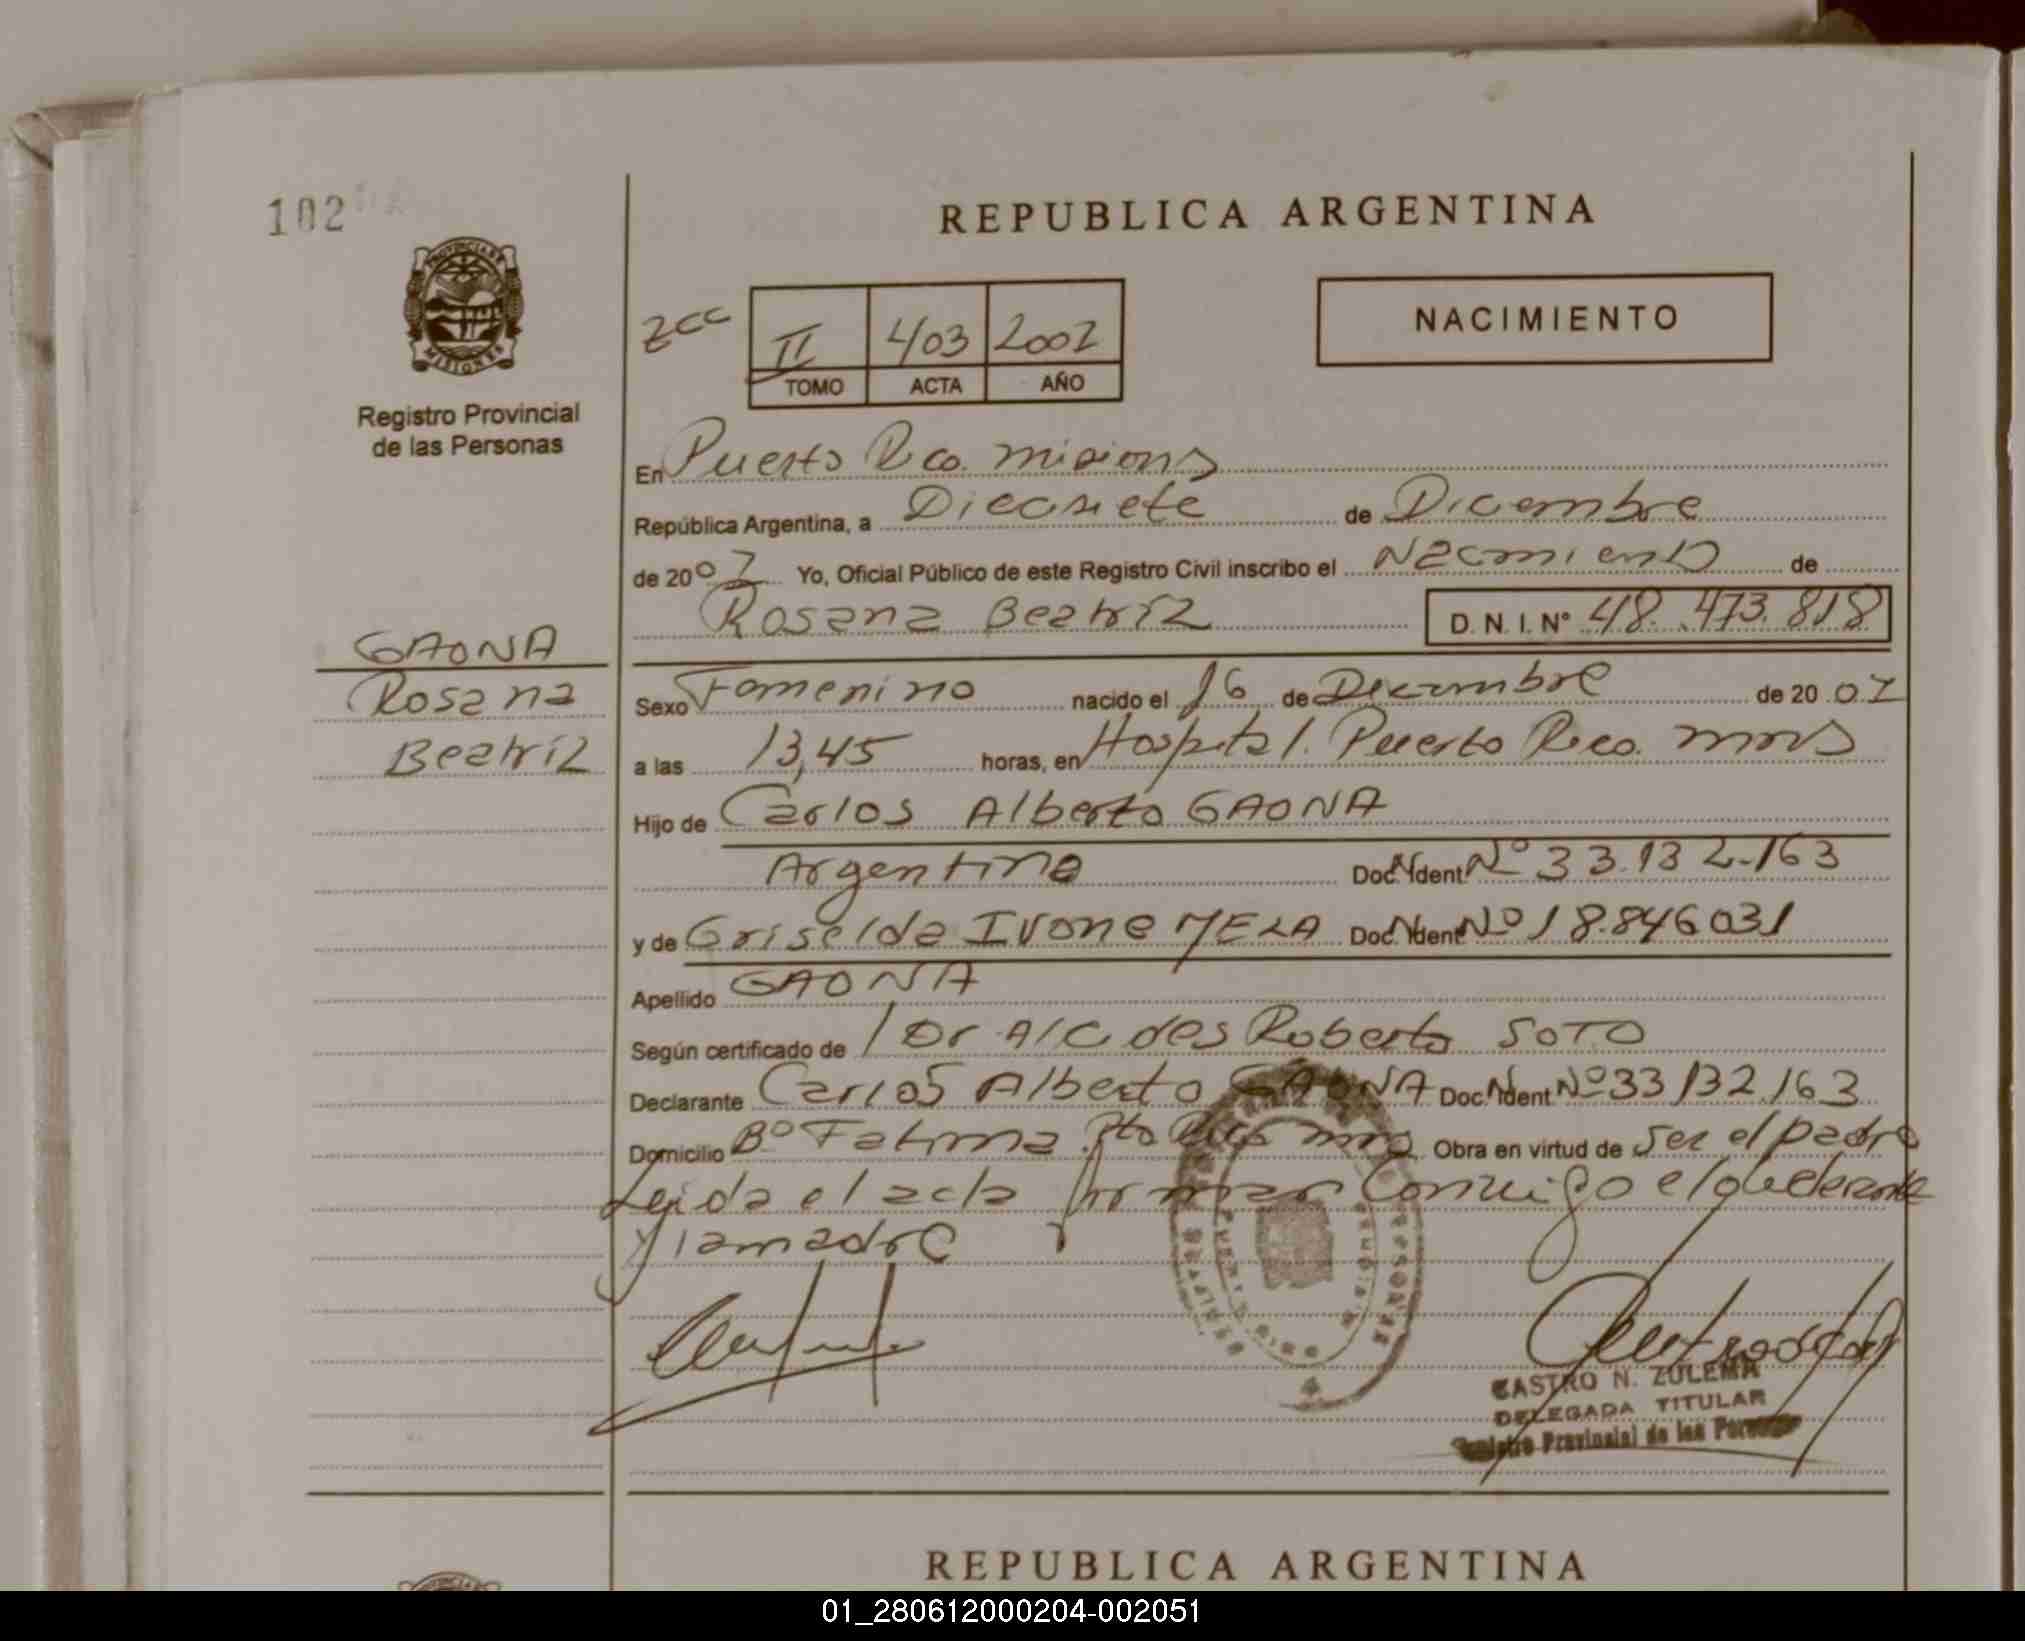 102
REPUBLICA ARGENTINA
PROVINCIA DE
MISIONES
Registro Provincial
de las Personas
II 403 2007
TOMO ACTA AÑO
NACIMIENTO
En Puerto Rico. Misiones
República Argentina, a Diecisiete de Diciembre
de 2007 Yo, Oficial Público de este Registro Civil inscribo el Nacimiento de
Rosana Beatriz D. N. I. N° 48.473.818
GAONA
Rosana
Beatriz
Sexo Femenino nacido el 16 de Diciembre de 20 07
a las 13,45 horas, en Hospital. Puerto Rico. Mnes
Hijo de Carlos Alberto GAONA
Argentina Doc. Ident. N° 33.132.163
y de Griselda Ivone MEZA Doc. Ident. N° 18.846031
Apellido GAONA
Según certificado de Dr Alcides Roberto SOTO
Declarante Carlos Alberto GAONA Doc. Ident N° 33132.163
Domicilio B° Fatima Pto Rico Mnes Obra en virtud de ser el padre
Leida el acta firman Conmigo el declarante
y la madre
CASTRO N. ZULEMA
DELEGADA TITULAR
Registro Provincial de las Personas
REPUBLICA ARGENTINA
01_280612000204-002051